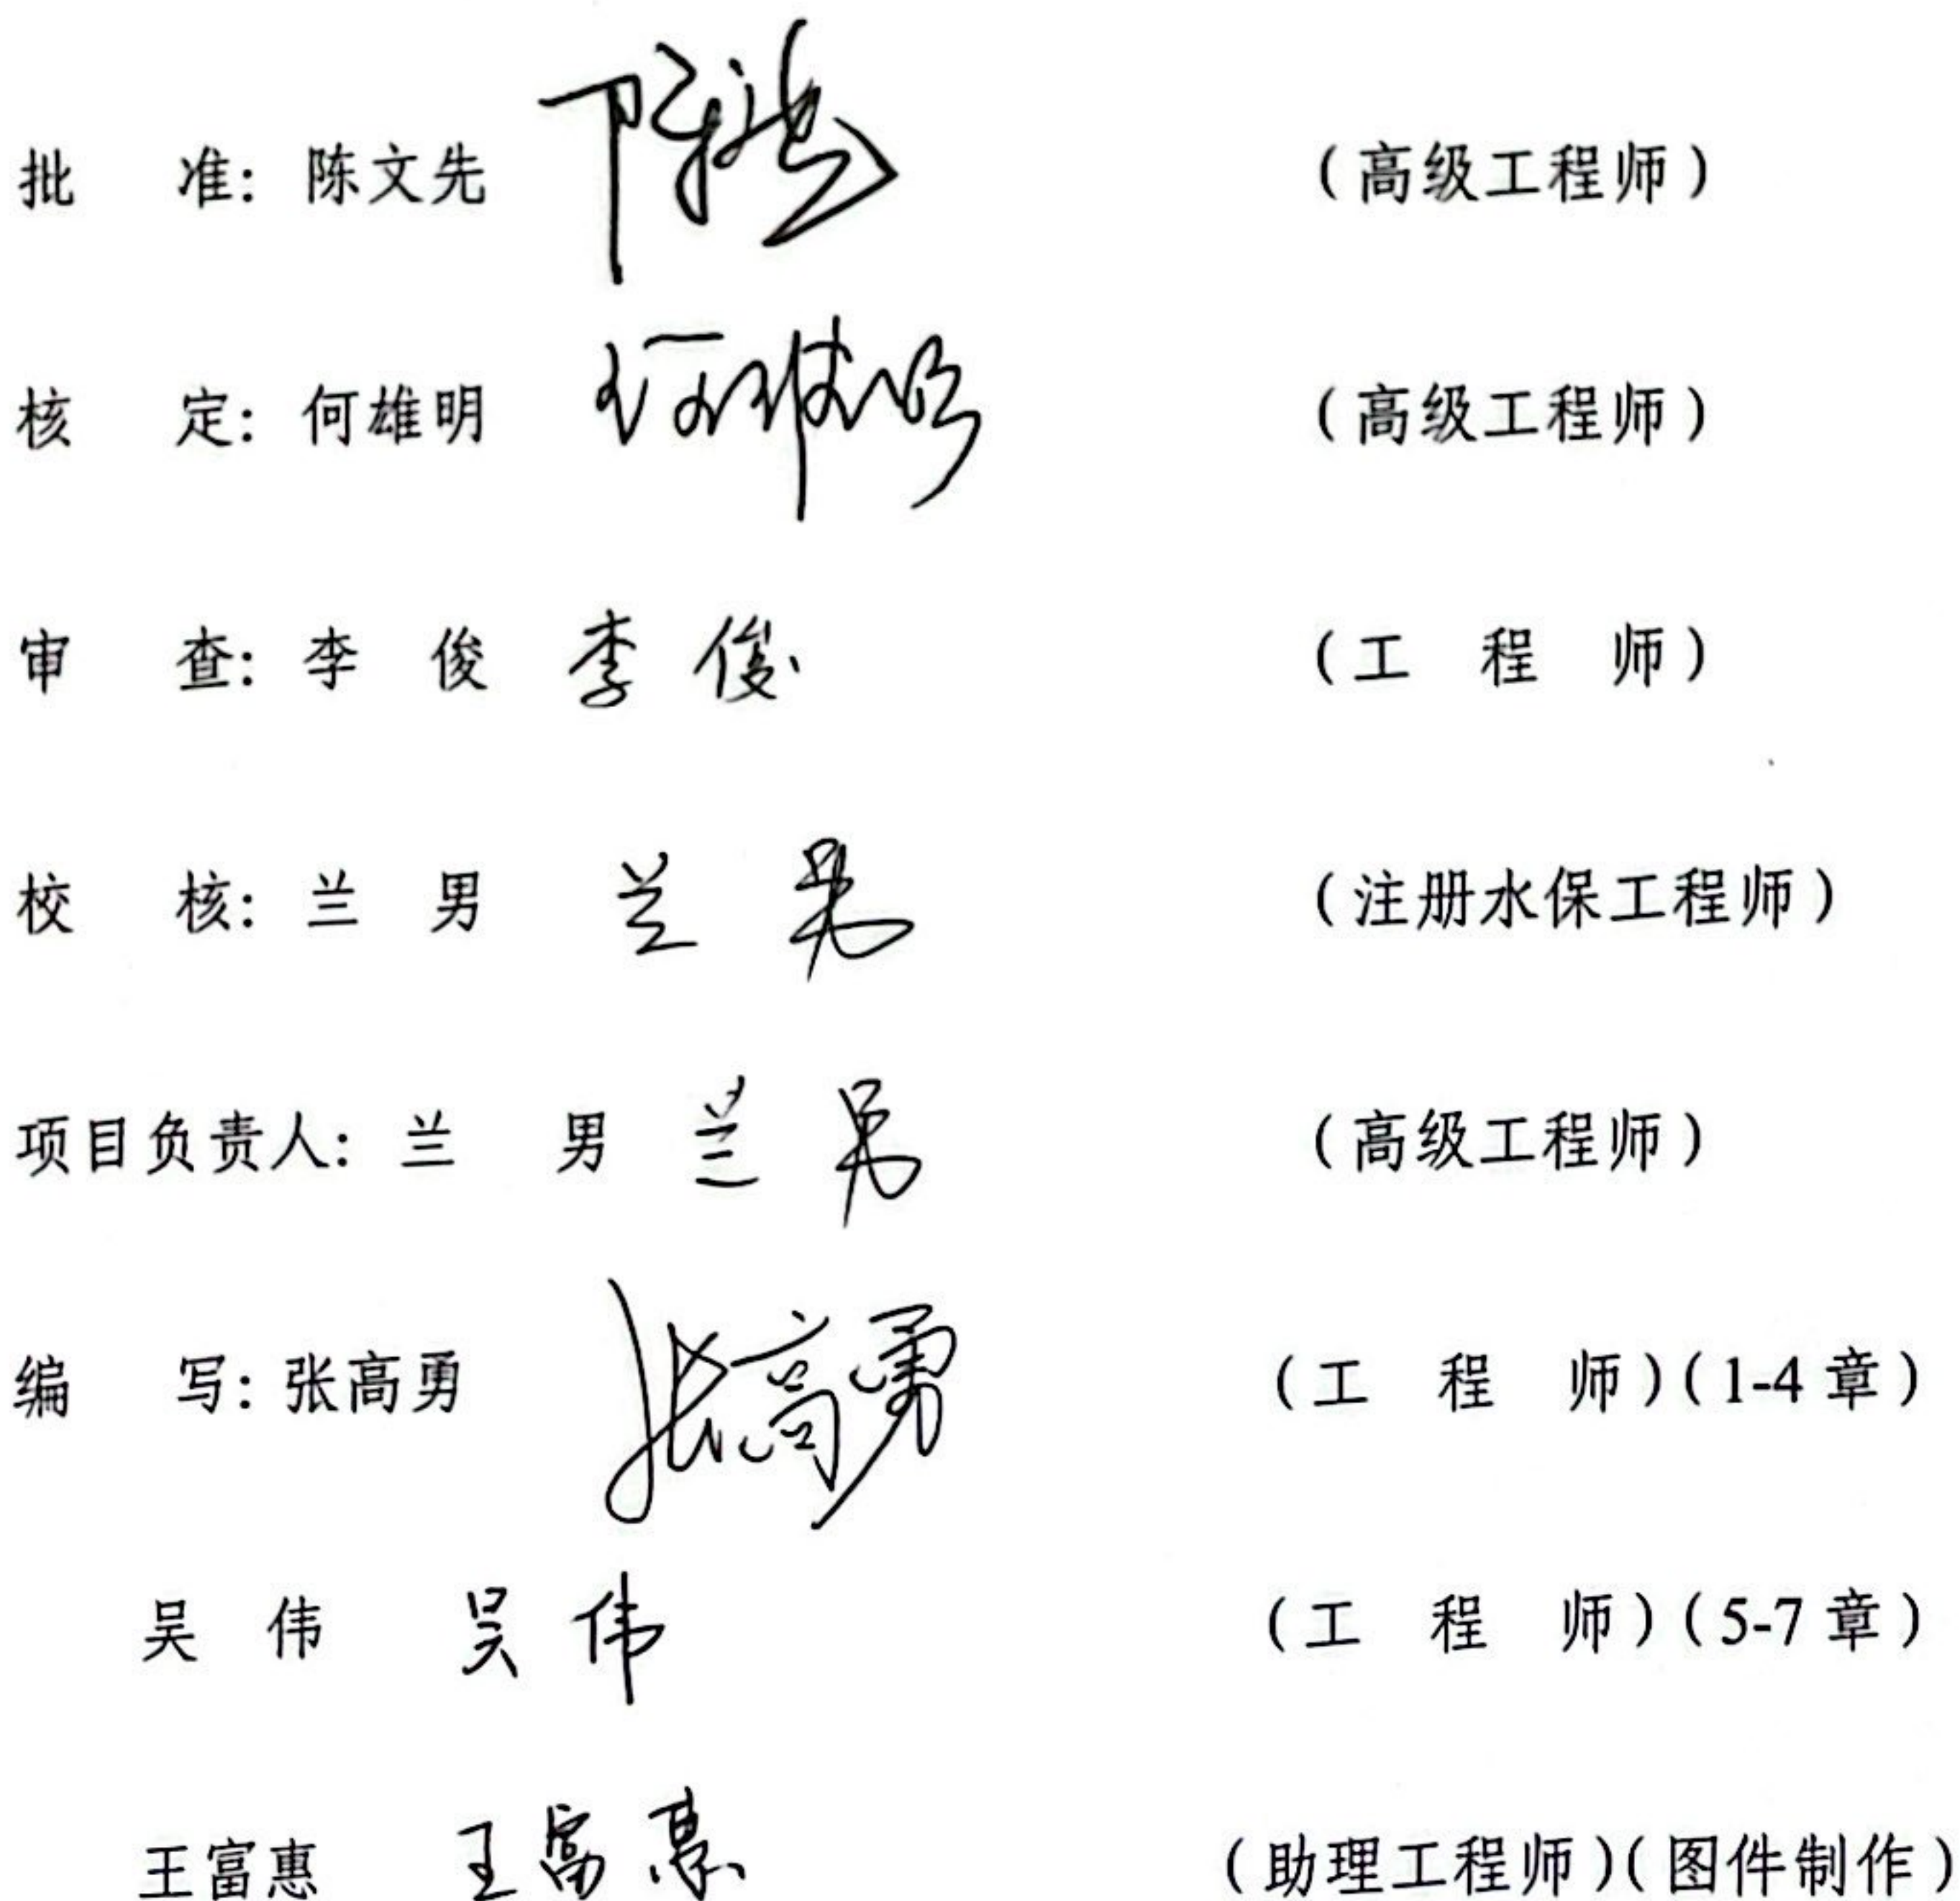 批 准: 陈文先 陈文先 (高级工程师)
核 定: 何雄明 何雄明 (高级工程师)
审 查: 李 俊 李 俊 (工 程 师)
校 核: 兰 男 兰 男 (注册水保工程师)
项目负责人: 兰 男 兰 男 (高级工程师)
编 写: 张高勇 张高勇 (工 程 师)(1-4 章)
吴 伟 吴 伟 (工 程 师)(5-7 章)
王富惠 王富惠 (助理工程师)(图件制作)